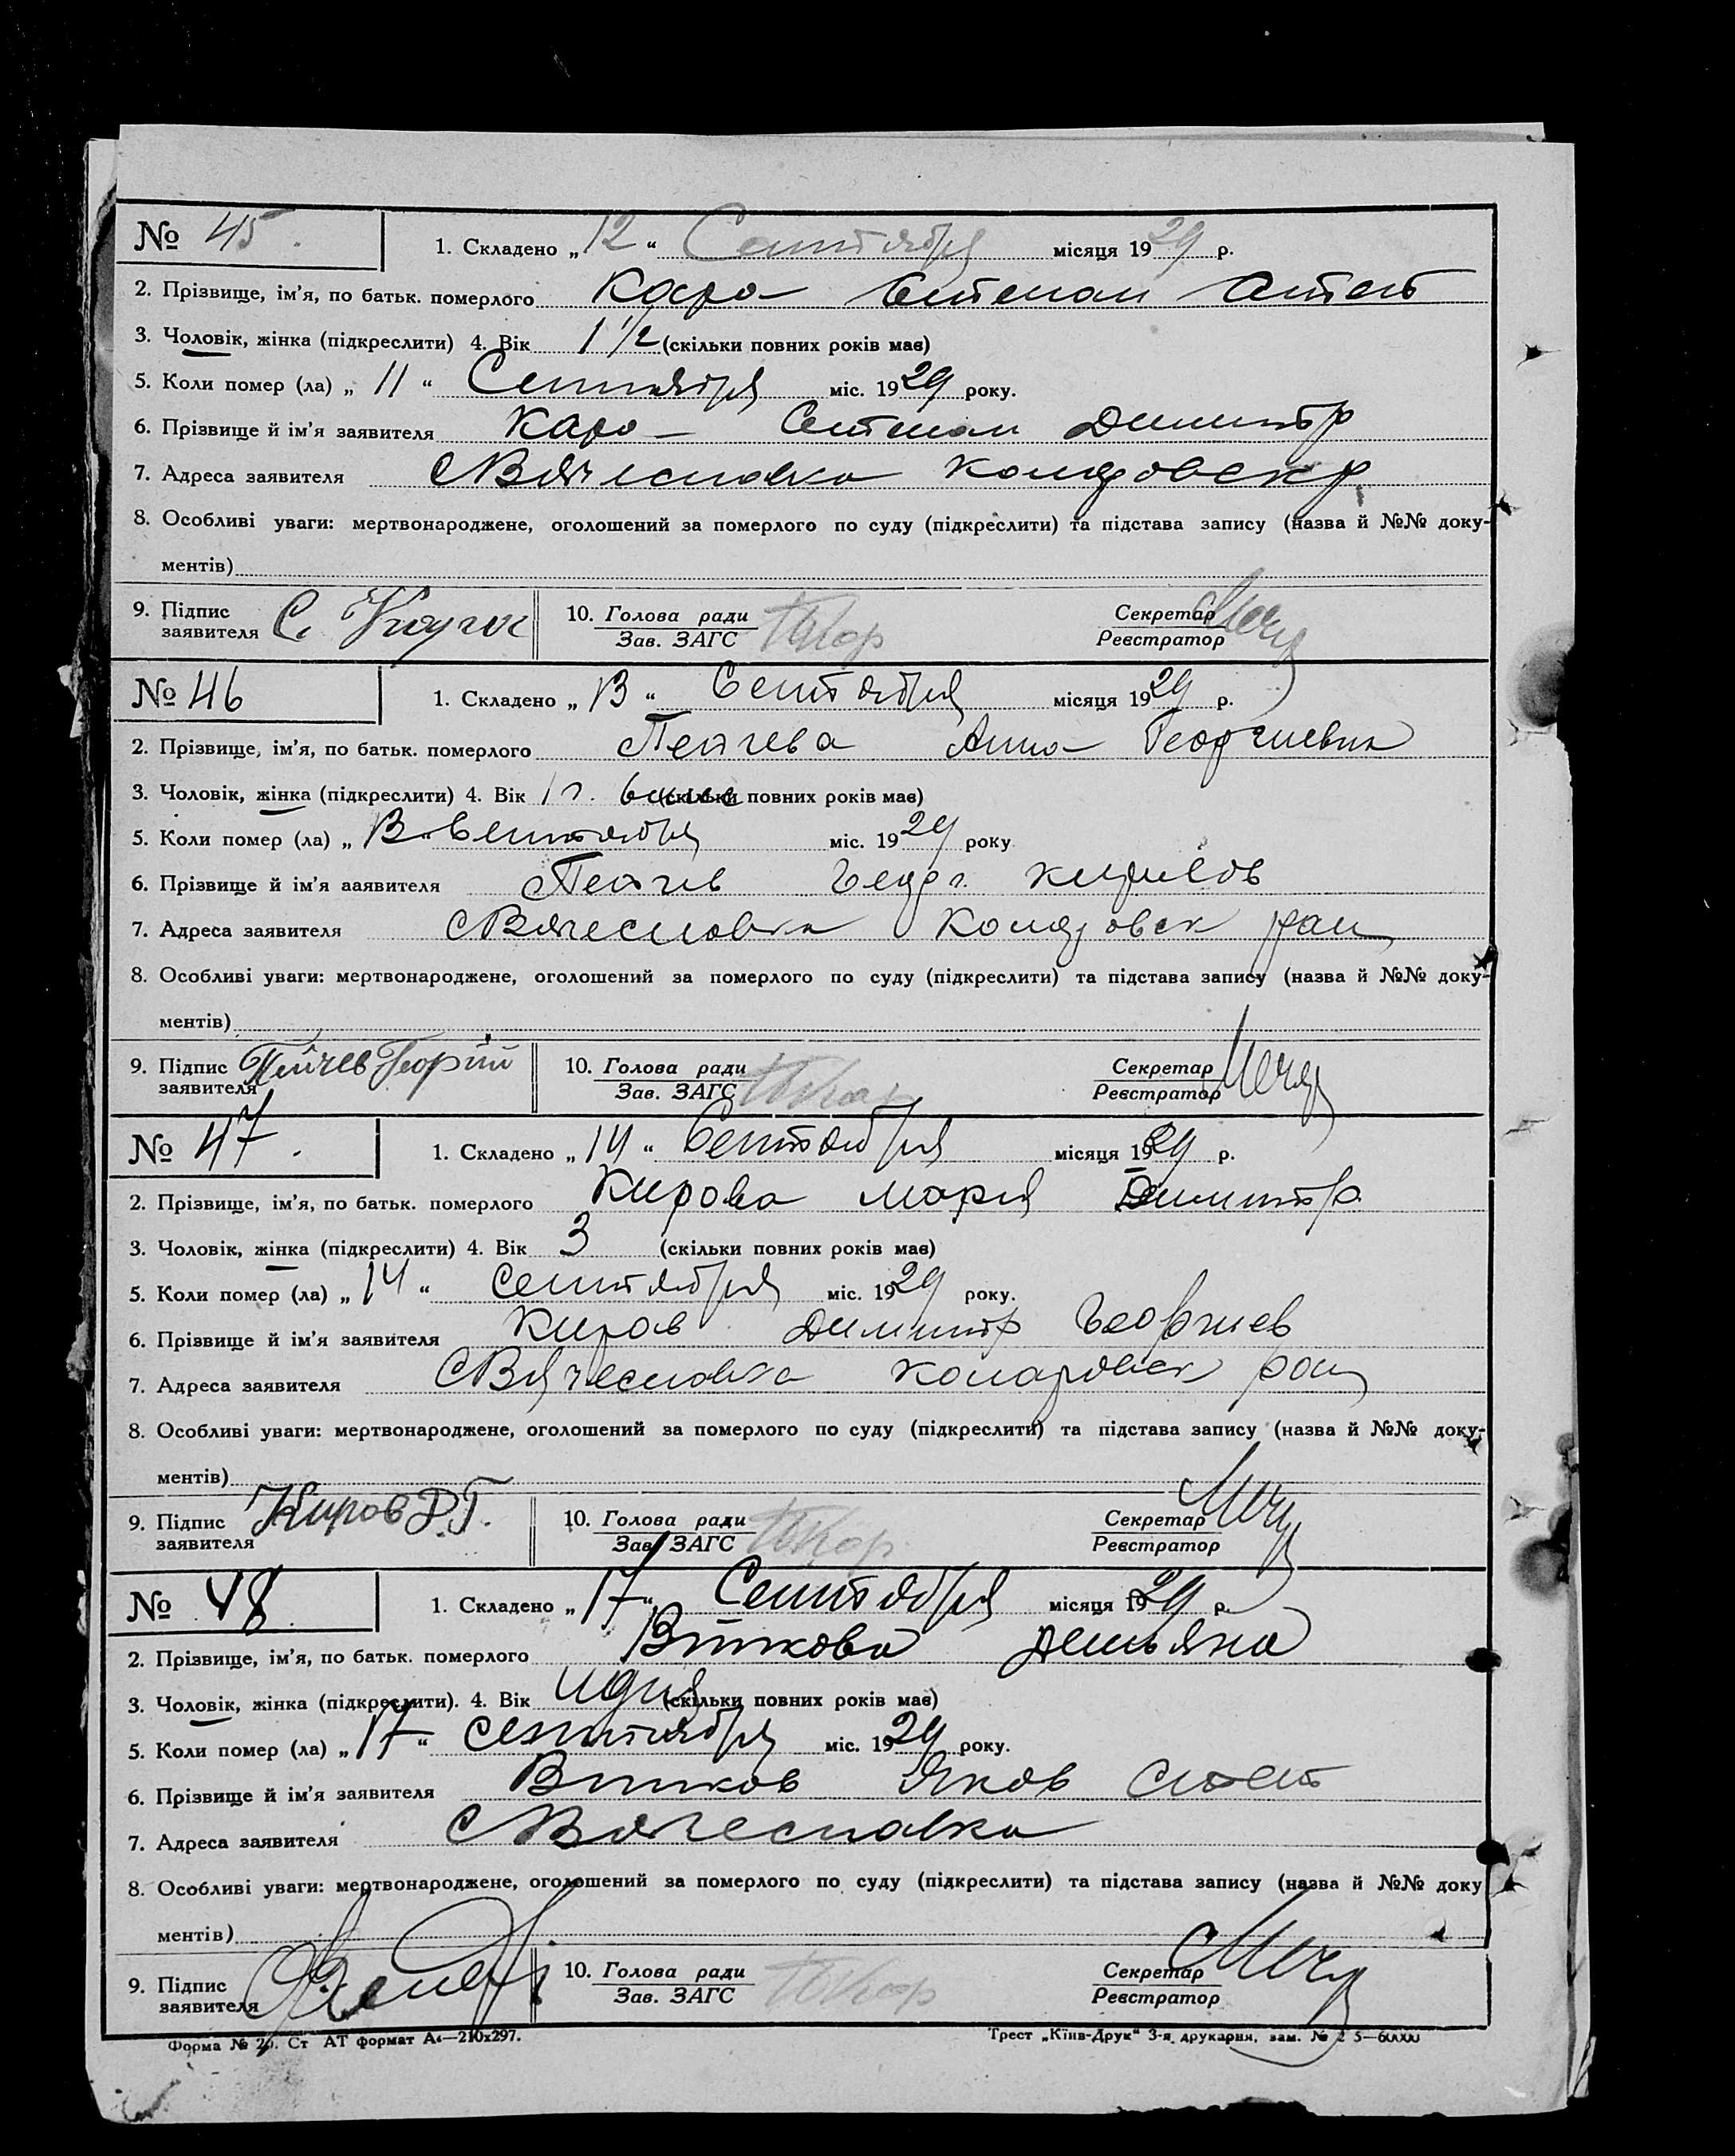 № 45. 1. Складено „12“ Сентября місяця 1929 р.
2. Прізвище, ім'я, по батьк. померлого Каро Степан Степ
3. Чоловік, жінка (підкреслити) 4. Вік 1 1/2 (скільки повних років має)
5. Коли помер (ла) „11“ Сентября міс. 1929 року.
6. Прізвище й ім'я заявителя Каро Степан Димитр
7. Адреса заявителя с Вячеславка
8. Особливі уваги: мертвонароджене, оголошений за померлого по суду (підкреслити) та підстава запису (назва й №№ доку-
ментів)
9. Підпис заявителя С. 10. Голова ради Зав. ЗАГС Секретар Реєстратор
№ 46 1. Складено „13“ Сентября місяця 1929 р.
2. Прізвище, ім'я, по батьк. померлого Пейчева Анна Георгиевна
3. Чоловік, жінка (підкреслити) 4. Вік 1 г. (скільки повних років має)
5. Коли помер (ла) „13“ Сентября міс. 1929 року
6. Прізвище й ім'я ааявителя Пейчев Георг. Кирилов
7. Адреса заявителя с Вячеславка рай
8. Особливі уваги: мертвонароджене, оголошений за померлого по суду (підкреслити) та підстава запису (назва й №№ доку-
ментів)
9. Підпис заявителя Пейчев Георгій 10. Голова ради Зав. ЗАГС Секретар Реєстратор
№ 47. 1. Складено „14“ Сентября місяця 1929 р.
2. Прізвище, ім'я, по батьк. померлого Кирова Мария Димитр.
3. Чоловік, жінка (підкреслити) 4. Вік 3 (скільки повних років має)
5. Коли помер (ла) „14“ Сентября міс. 1929 року.
6. Прізвище й ім'я заявителя Киров Димитр Георгиев
7. Адреса заявителя с Вячеславка рай
8. Особливі уваги: мертвонароджене, оголошений за померлого по суду (підкреслити) та підстава запису (назва й №№ доку-
ментів)
9. Підпис заявителя Киров Д.Г. 10. Голова ради Зав. ЗАГС Секретар Реєстратор
№ 48. 1. Складено „17“ Сентября місяця 1929 р.
2. Прізвище, ім'я, по батьк. померлого Демьяна
3. Чоловік, жінка (підкреслити). 4. Вік (скільки повних років має)
5. Коли помер (ла) „17“ сентября міс. 1929 року.
6. Прізвище й ім'я заявителя Яков
7. Адреса заявителя с Вячеславка
8. Особливі уваги: мертвонароджене, оголошений за померлого по суду (підкреслити) та підстава запису (назва й №№ доку
ментів)
9. Підпис заявителя 10. Голова ради Зав. ЗАГС Секретар Реєстратор
Форма № Ст АТ формат А4—210х297. Трест „Київ-Друк“ 3-я друкарня, зам. №